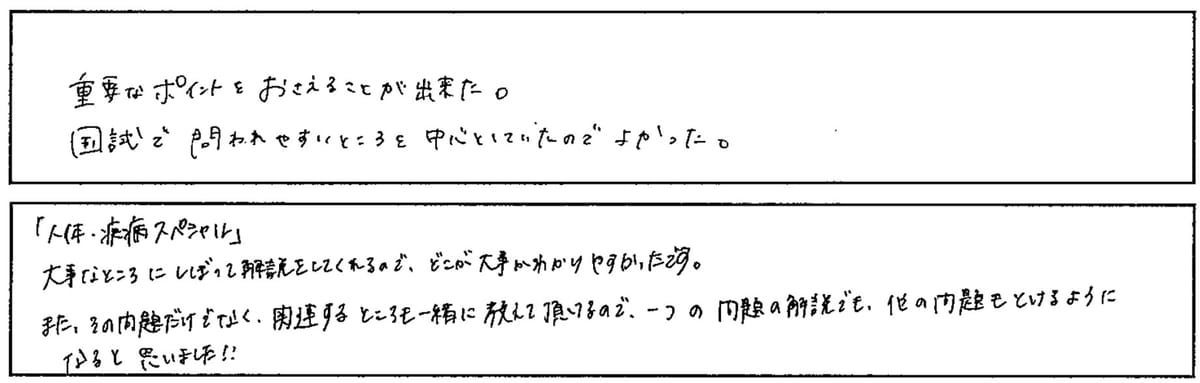 重要なポイントをおさえることが出来た。
国試で問われやすいところを中心としていたのでよかった。
「人体・疾病スペシャル」
大事なところにしぼって解説をしてくれるので、どこが大事かわかりやすかったです。
また、その問題だけでなく、関連するところも一緒に教えて頂けるので、一つの問題の解説でも、他の問題もとけるように
なると思いました!!